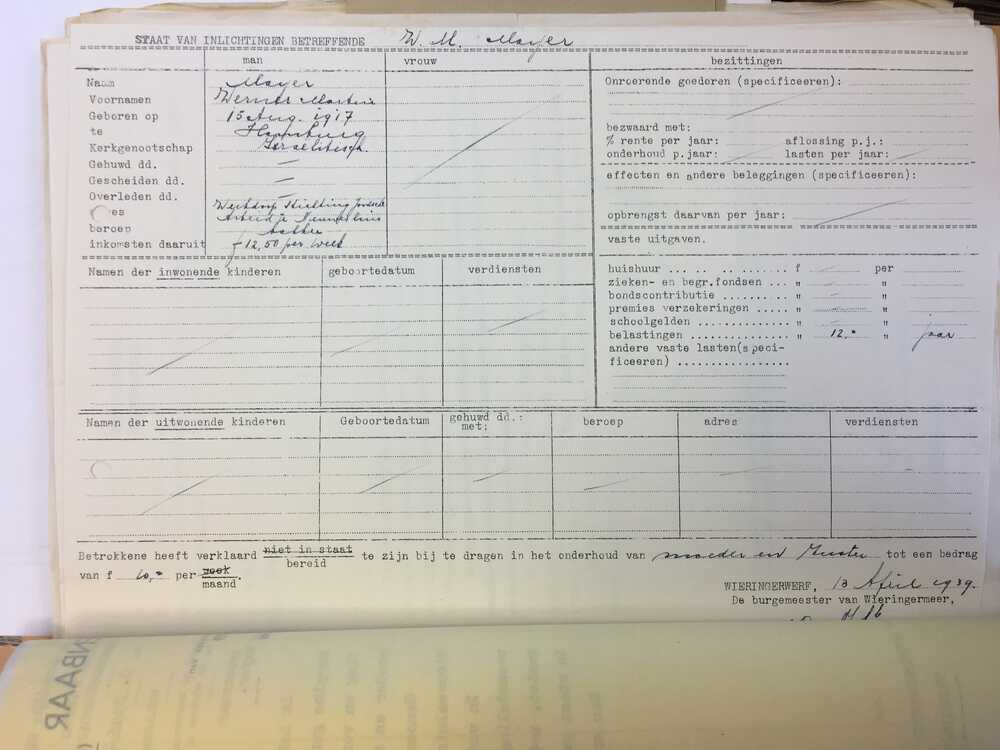 STAAT VAN INLICHTINGEN BETREFFENDE W. M. Mayer
man vrouw bezittingen
Naam Mayer
Voornamen Werner Martin
Geboren op 15 Aug. 1917
te Hamburg
Kerkgenootschap Israelitisch
Gehuwd dd. —
Gescheiden dd. —
Overleden dd.
es Werkdorp Stichting Joodsche
beroep Arbeid
inkomsten daaruit f 12,50 per week
Onroerende goederen (specificeeren):
bezwaard met:
% rente per jaar: aflossing p.j.:
onderhoud p.jaar: lasten per jaar:
effecten en andere beleggingen (specificeeren):
opbrengst daarvan per jaar:
vaste uitgaven.
huishuur ... .. .. ....... f per
zieken- en begr.fondsen ... " "
bondscontributie .......... " "
premies verzekeringen ..... " "
schoolgelden .............. " "
belastingen ............... " 12.- " jaar
andere vaste lasten(speci-
ficeeren) .................
Namen der inwonende kinderen geboortedatum verdiensten
Namen der uitwonende kinderen Geboortedatum gehuwd dd.: beroep adres verdiensten
met:
Betrokkene heeft verklaard niet in staat te zijn bij te dragen in het onderhoud van moeder en zuster tot een bedrag
bereid
van f 10,- per week.
maand
WIERINGERWERF, 13 April 1939.
De burgemeester van Wieringermeer,
NBAAR